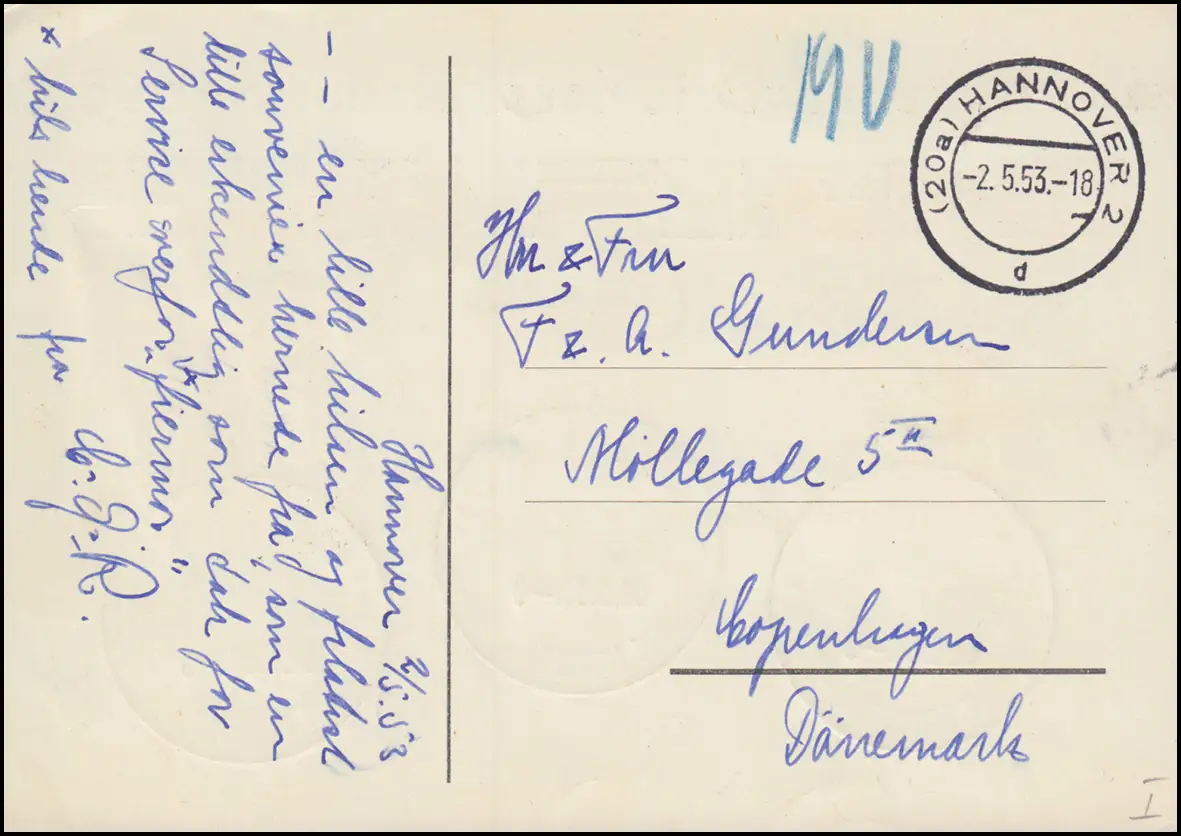 Hannover 2/5.53
– – en lille hilsen og filatist
souvenier hernede fra, som en
lille erkendtlig som dah for
Service overfor "fiernor"
* hils hende fra
G. R.
MU
(20a) HANNOVER 2
-2.5.53.-18
d
Hr z Fru
Fz. A. Gundersen
Möllegade 5 II
Copenhagen
Dänemark
I